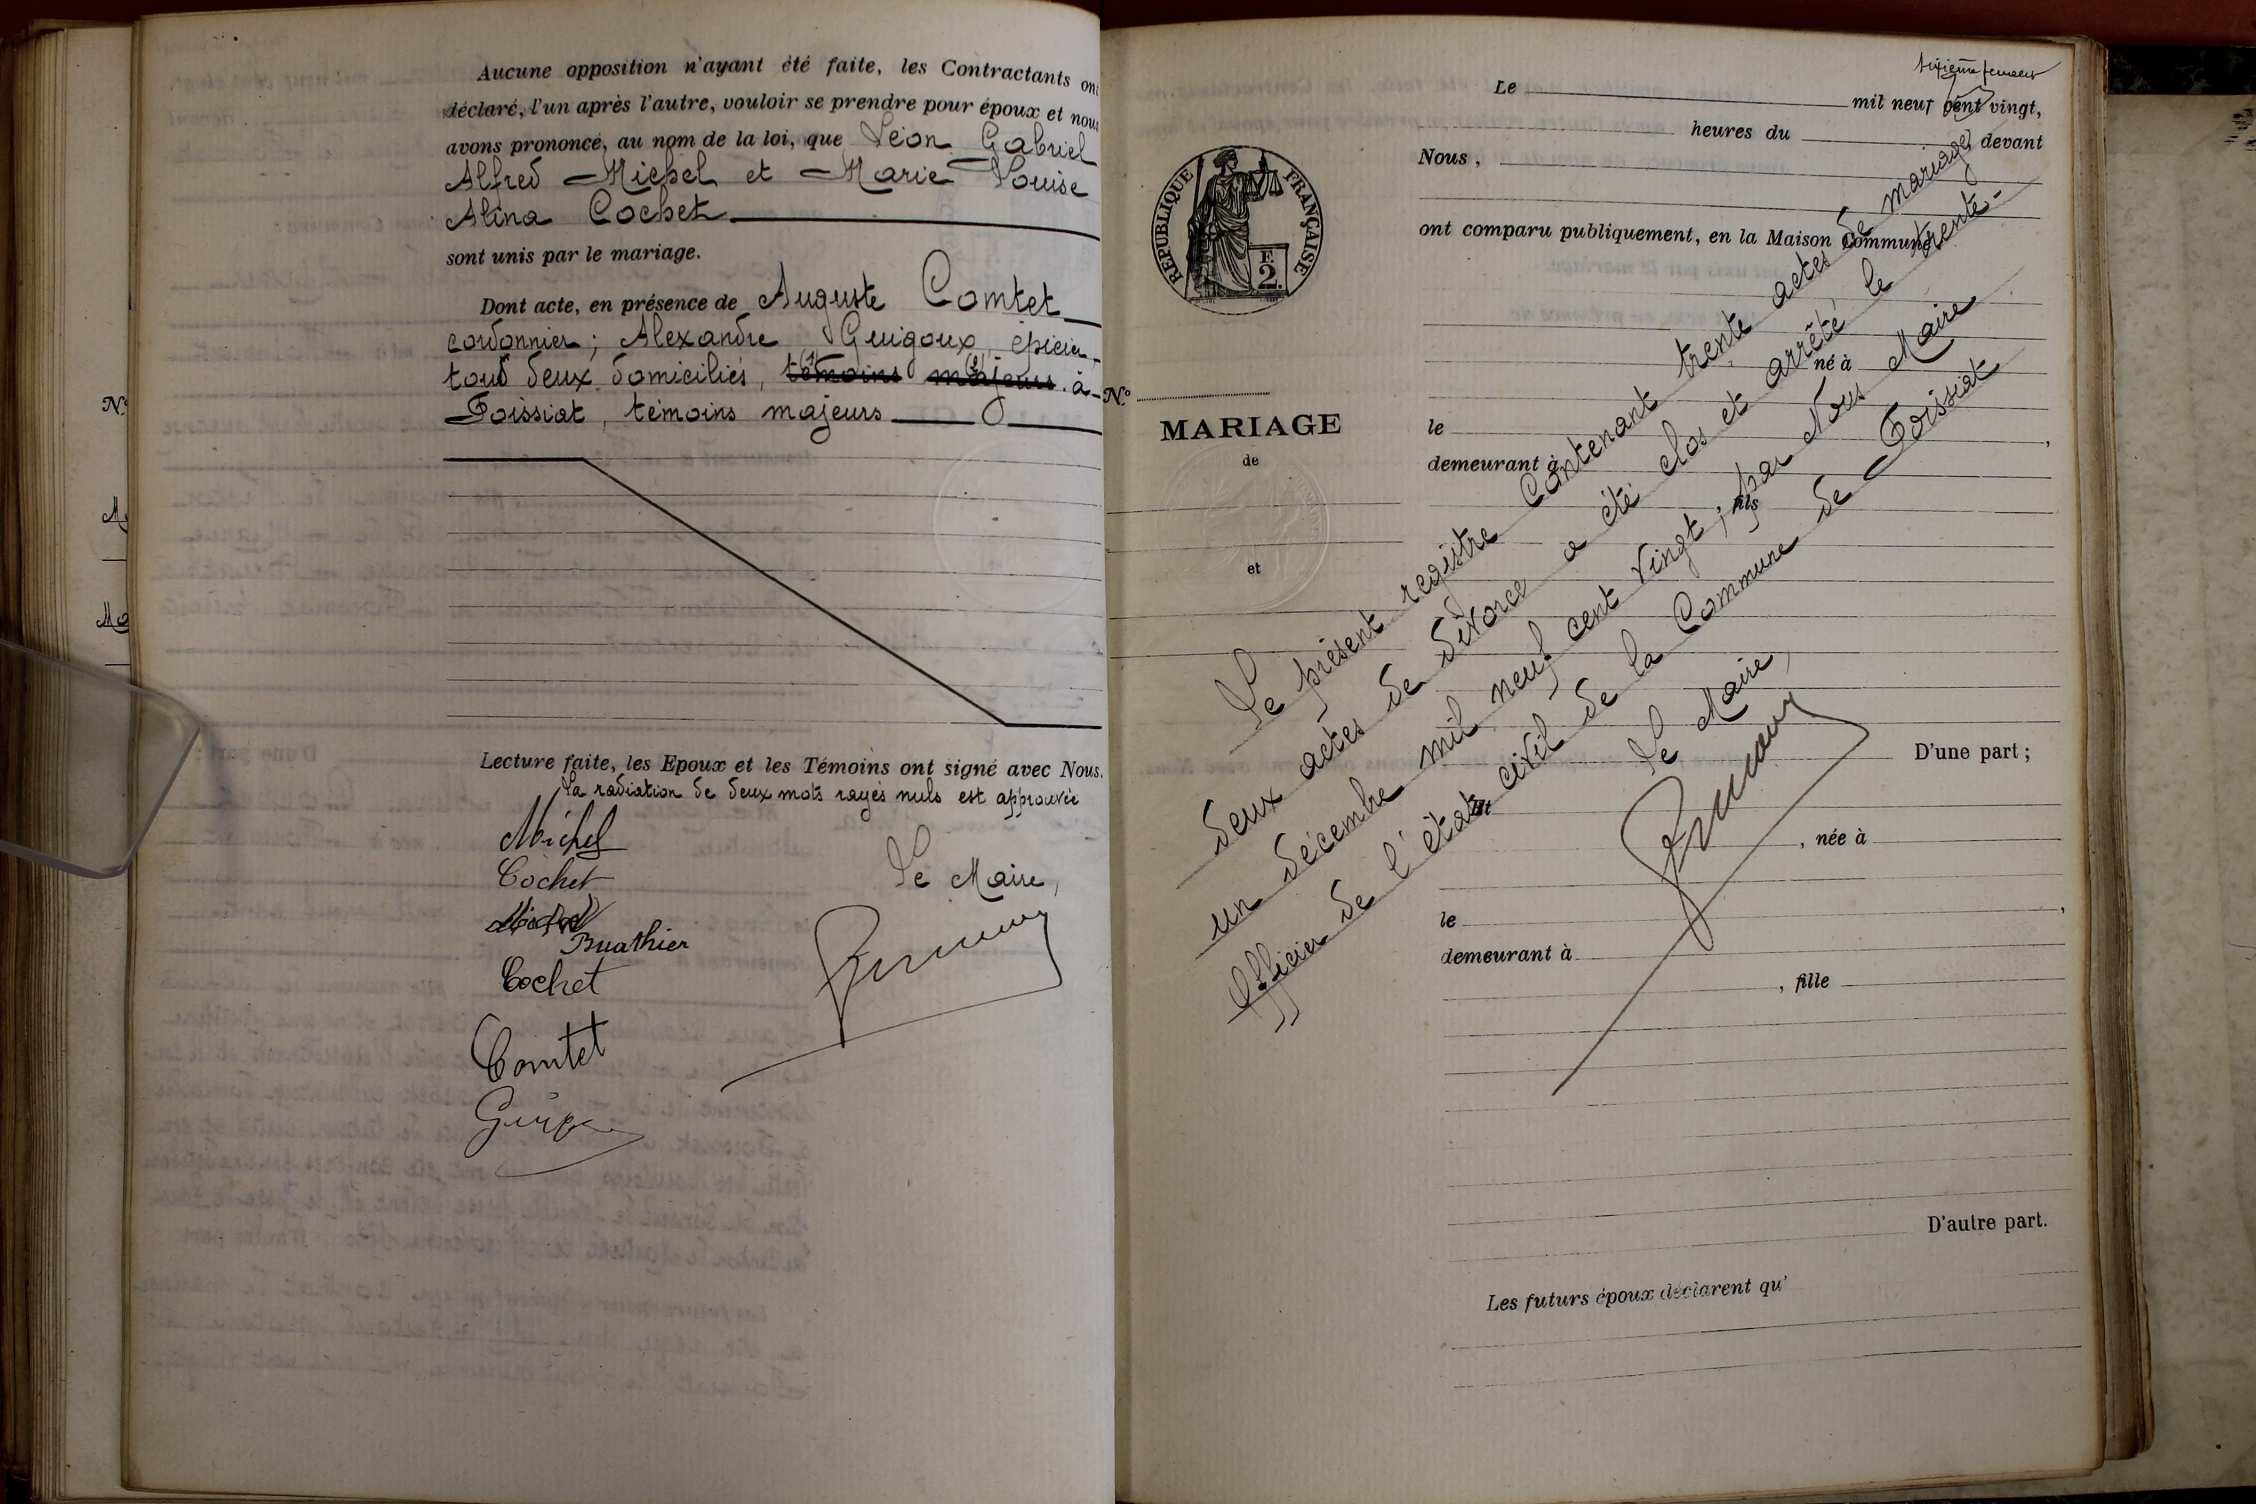 Aucune opposition n'ayant été faite, les Contractants ont
déclaré, l'un après l'autre, vouloir se prendre pour époux et nous
avons prononcé, au nom de la loi, que Léon Gabriel
Alfred Michel et Marie Louise
Alina Cochet
sont unis par le mariage.
Dont acte, en présence de Auguste Comtet
cordonnier ; Alexandre Guigoux, épicier,
tous deux domiciliés, témoins (1) majeurs (2) à
Foissiat, témoins majeurs
Lecture faite, les Epoux et les Témoins ont signé avec Nous.
La radiation de deux mots rayés nuls est approuvée
Michel
Cochet
Buathier
Cochet
Comtet
Le Maire,
N°
RÉPUBLIQUE FRANÇAISE
E.
2.
N°
MARIAGE
de
et
Le mil neuf cent vingt,
heures du devant
Nous,
ont comparu publiquement, en la Maison Commune
né à
le ,
demeurant à
fils
D'une part ;
Et
, née à
le ,
demeurant à
, fille
D'autre part.
Les futurs époux déclarent qu'
Le présent registre contenant trente actes de mariages
deux actes de divorce a été clos et arrêté le trente-
un décembre mil neuf cent vingt, par Nous Maire
Officier de l'état civil de la Commune de Foissiat
Le Maire,